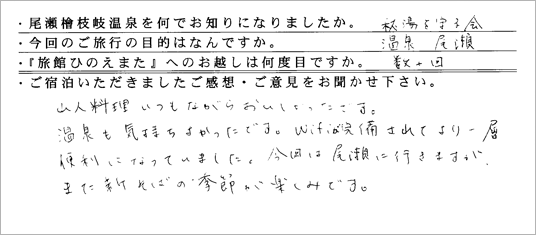 ・尾瀬檜枝岐温泉を何でお知りになりましたか。 秘湯を守る会
・今回のご旅行の目的はなんですか。 温泉 尾瀬
・『旅館ひのえまた』へのお越しは何度目ですか。 数十回
・ご宿泊いただきましたご感想・ご意見をお聞かせ下さい。
山人料理いつもながらおいしかったです。
温泉も気持ちよかったです。Wifi完備されてより一層
便利になっていました。今回は尾瀬に行きますが、
また新そばの季節が楽しみです。